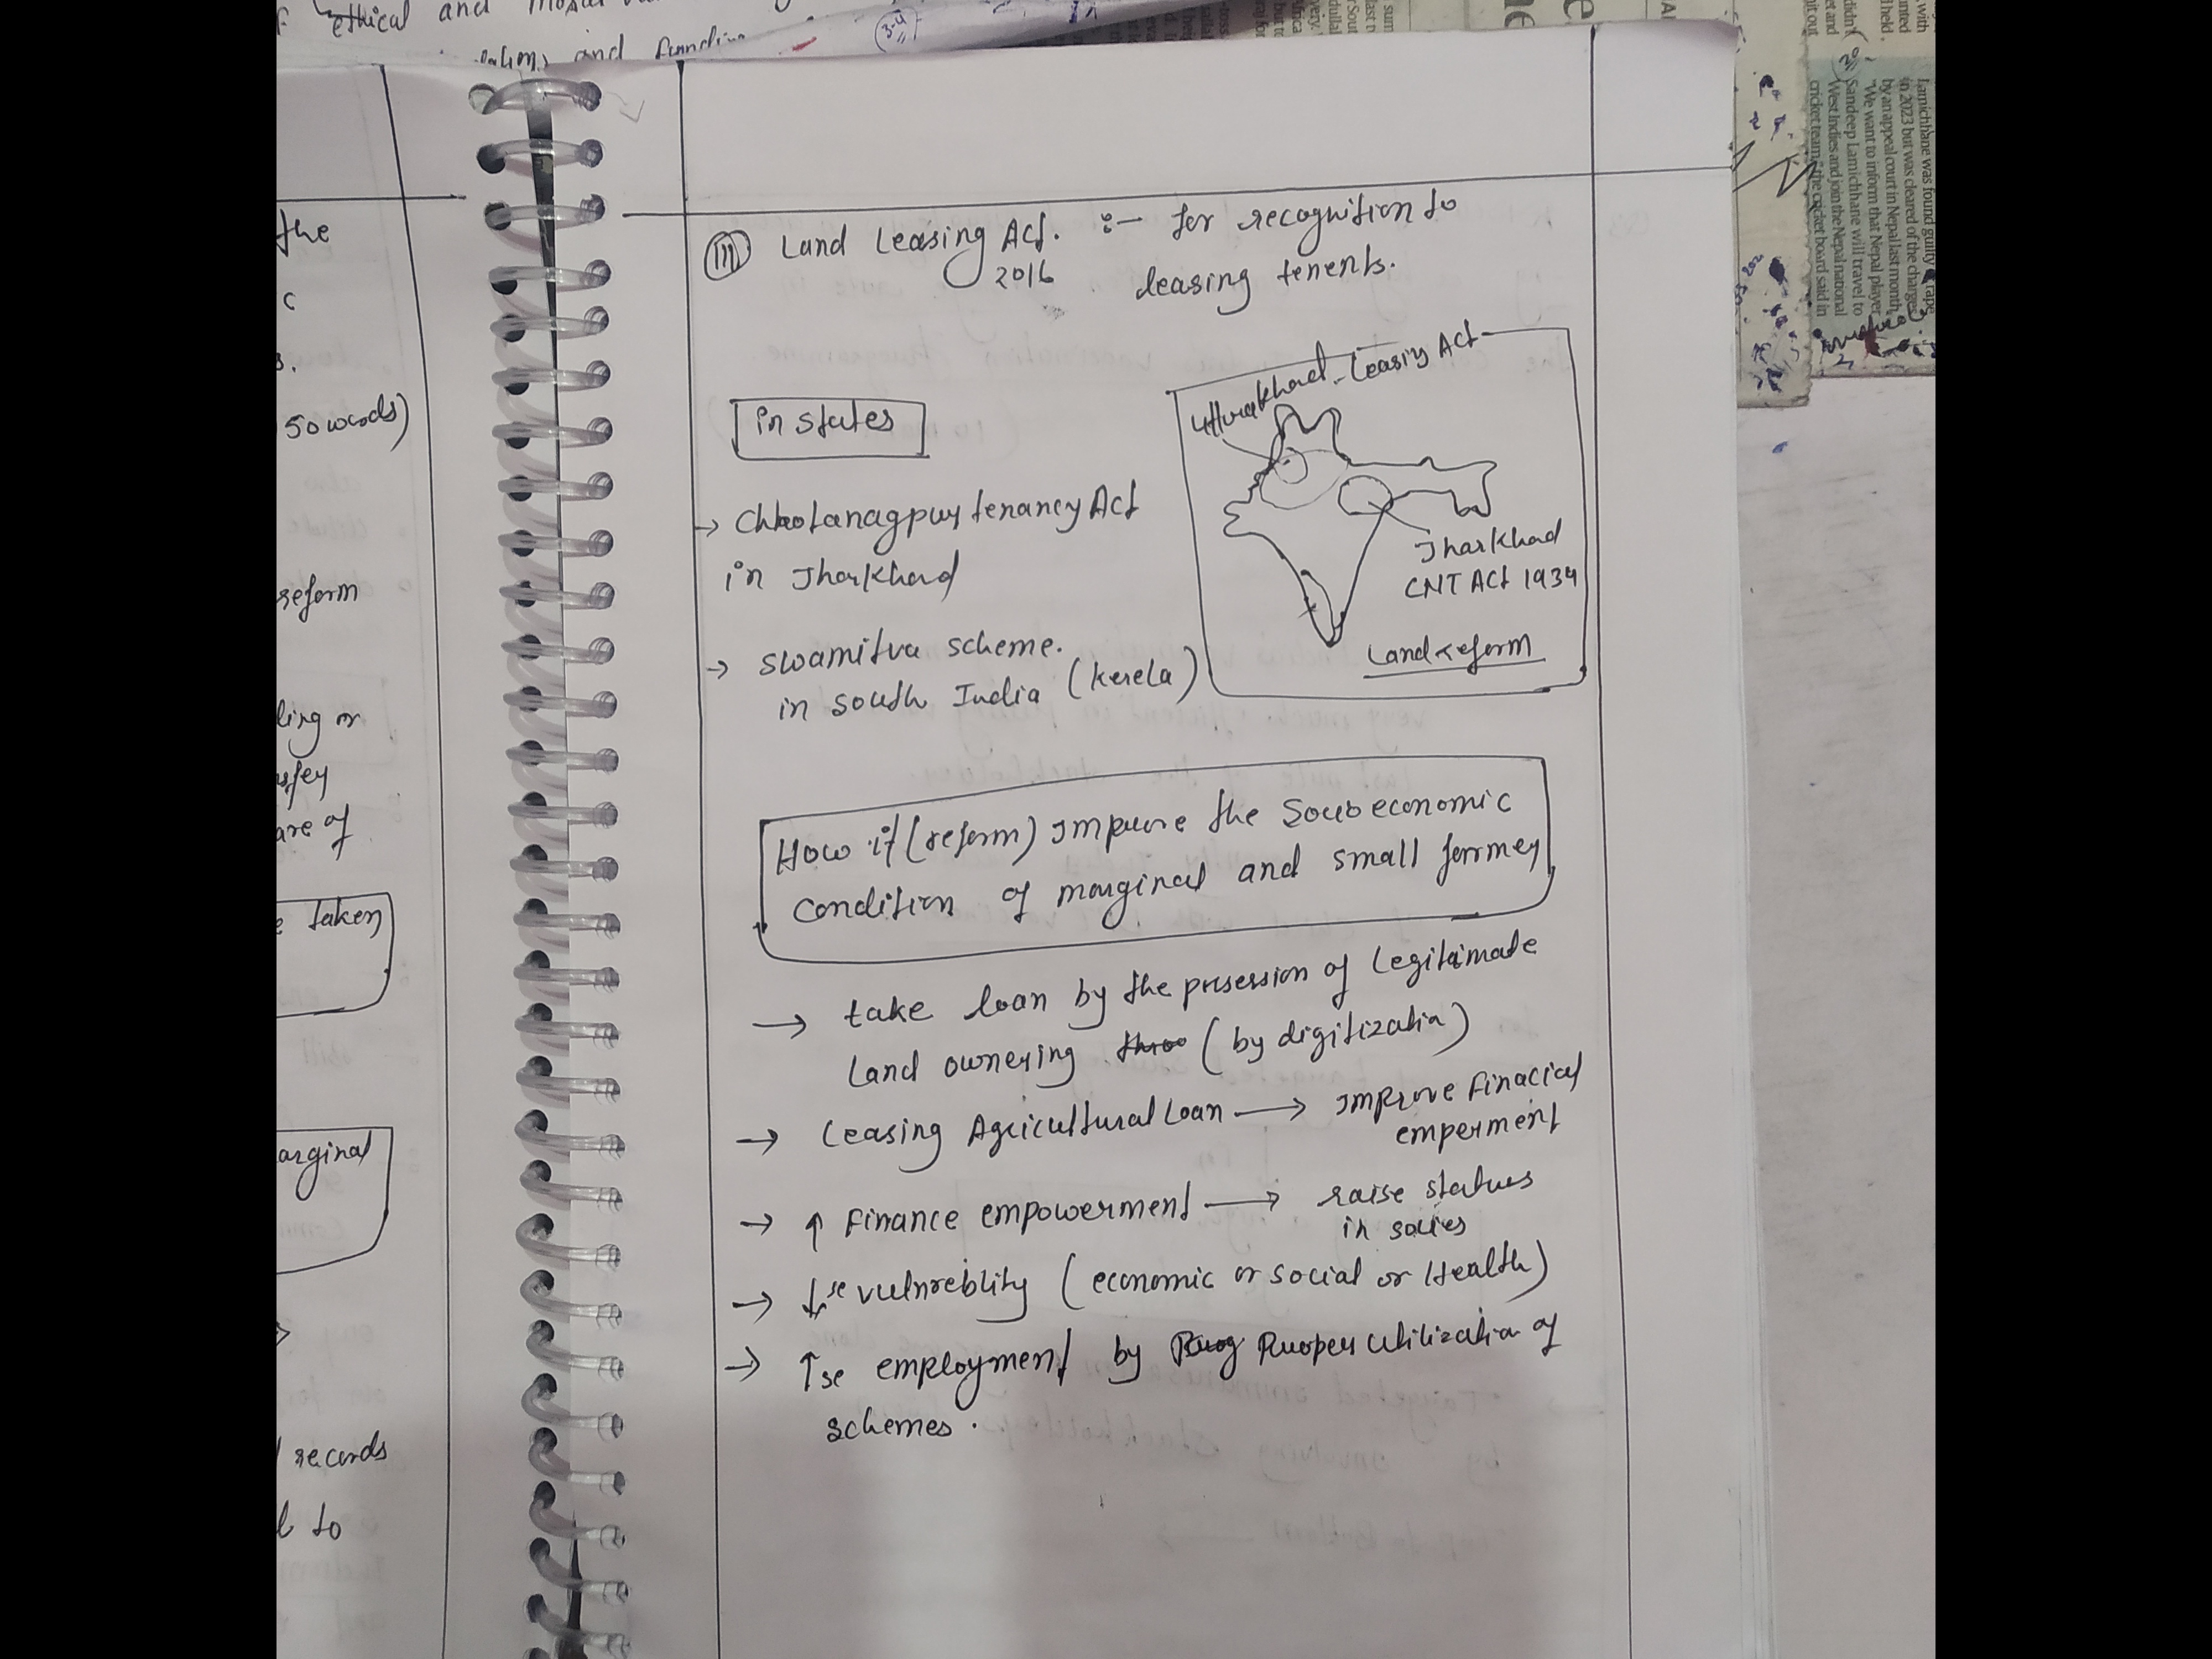 ethical and
and
3-4
the
c
50 words)
reform
ling or
are of
taken
arginal
records
to
(III) Land Leasing Act. :- for recognition to
2016 leasing tenents.
in states
→ Chhotanagpur tenancy Act
in Jharkhand
→ Swamitva scheme.
in south India (Kerela)
Uttrakhand Leasing Act
Jharkhand
CNT Act 1934
Land reform
How it (reform) improve the Socio economic
condition of marginal and small farmer
→ take loan by the possession of Legitimate
Land ownering (by digitization)
→ Leasing Agricultural Loan → Improve Finacial
emperment
→ ↑ Finance empowerment → raise statues
in socies
→ ↓se vulnreblity (economic or social or Health)
→ ↑se employment by Proper Utilization of
schemes.
lamichhane was found guilty of rape
in 2023 but was cleared of the charges
by an appeal court in Nepal last month.
"We want to inform that Nepal player
Sandeep Lamichhane will travel to
West Indies and join the Nepal national
cricket team," the cricket board said in